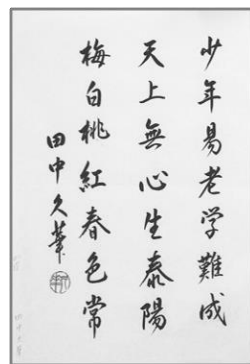 少年易老学難成
天上無心生泰陽
梅白桃紅春色常
田中久華